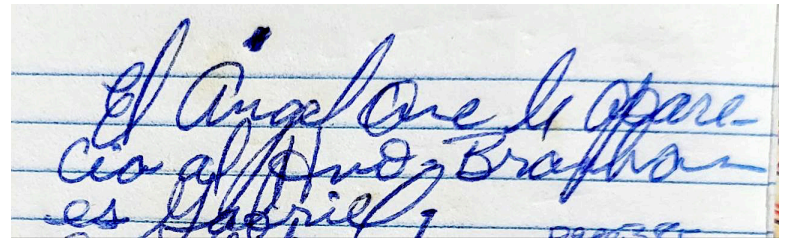 El Angel Que le apare-
cio al Hno. Branham
es Gabriel,